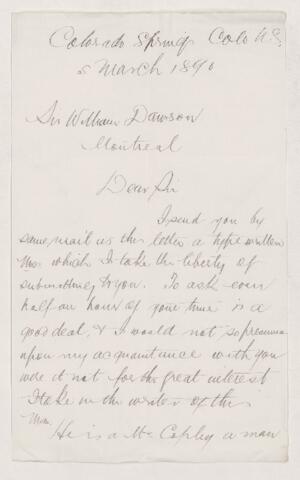 Colorado Springs Colo U.S.
5 March 1890
Sir William Dawson
Montreal
Dear Sir
I send you by
same mail as this letter a type written
Ms. which I take the liberty of
submitting to you. To ask even
half an hour of your time is a
good deal, & I would not so presume
upon my acquantance with you
were it not for the great interest
I take in the writer of this
Mss.
He is a Mr Copley a man